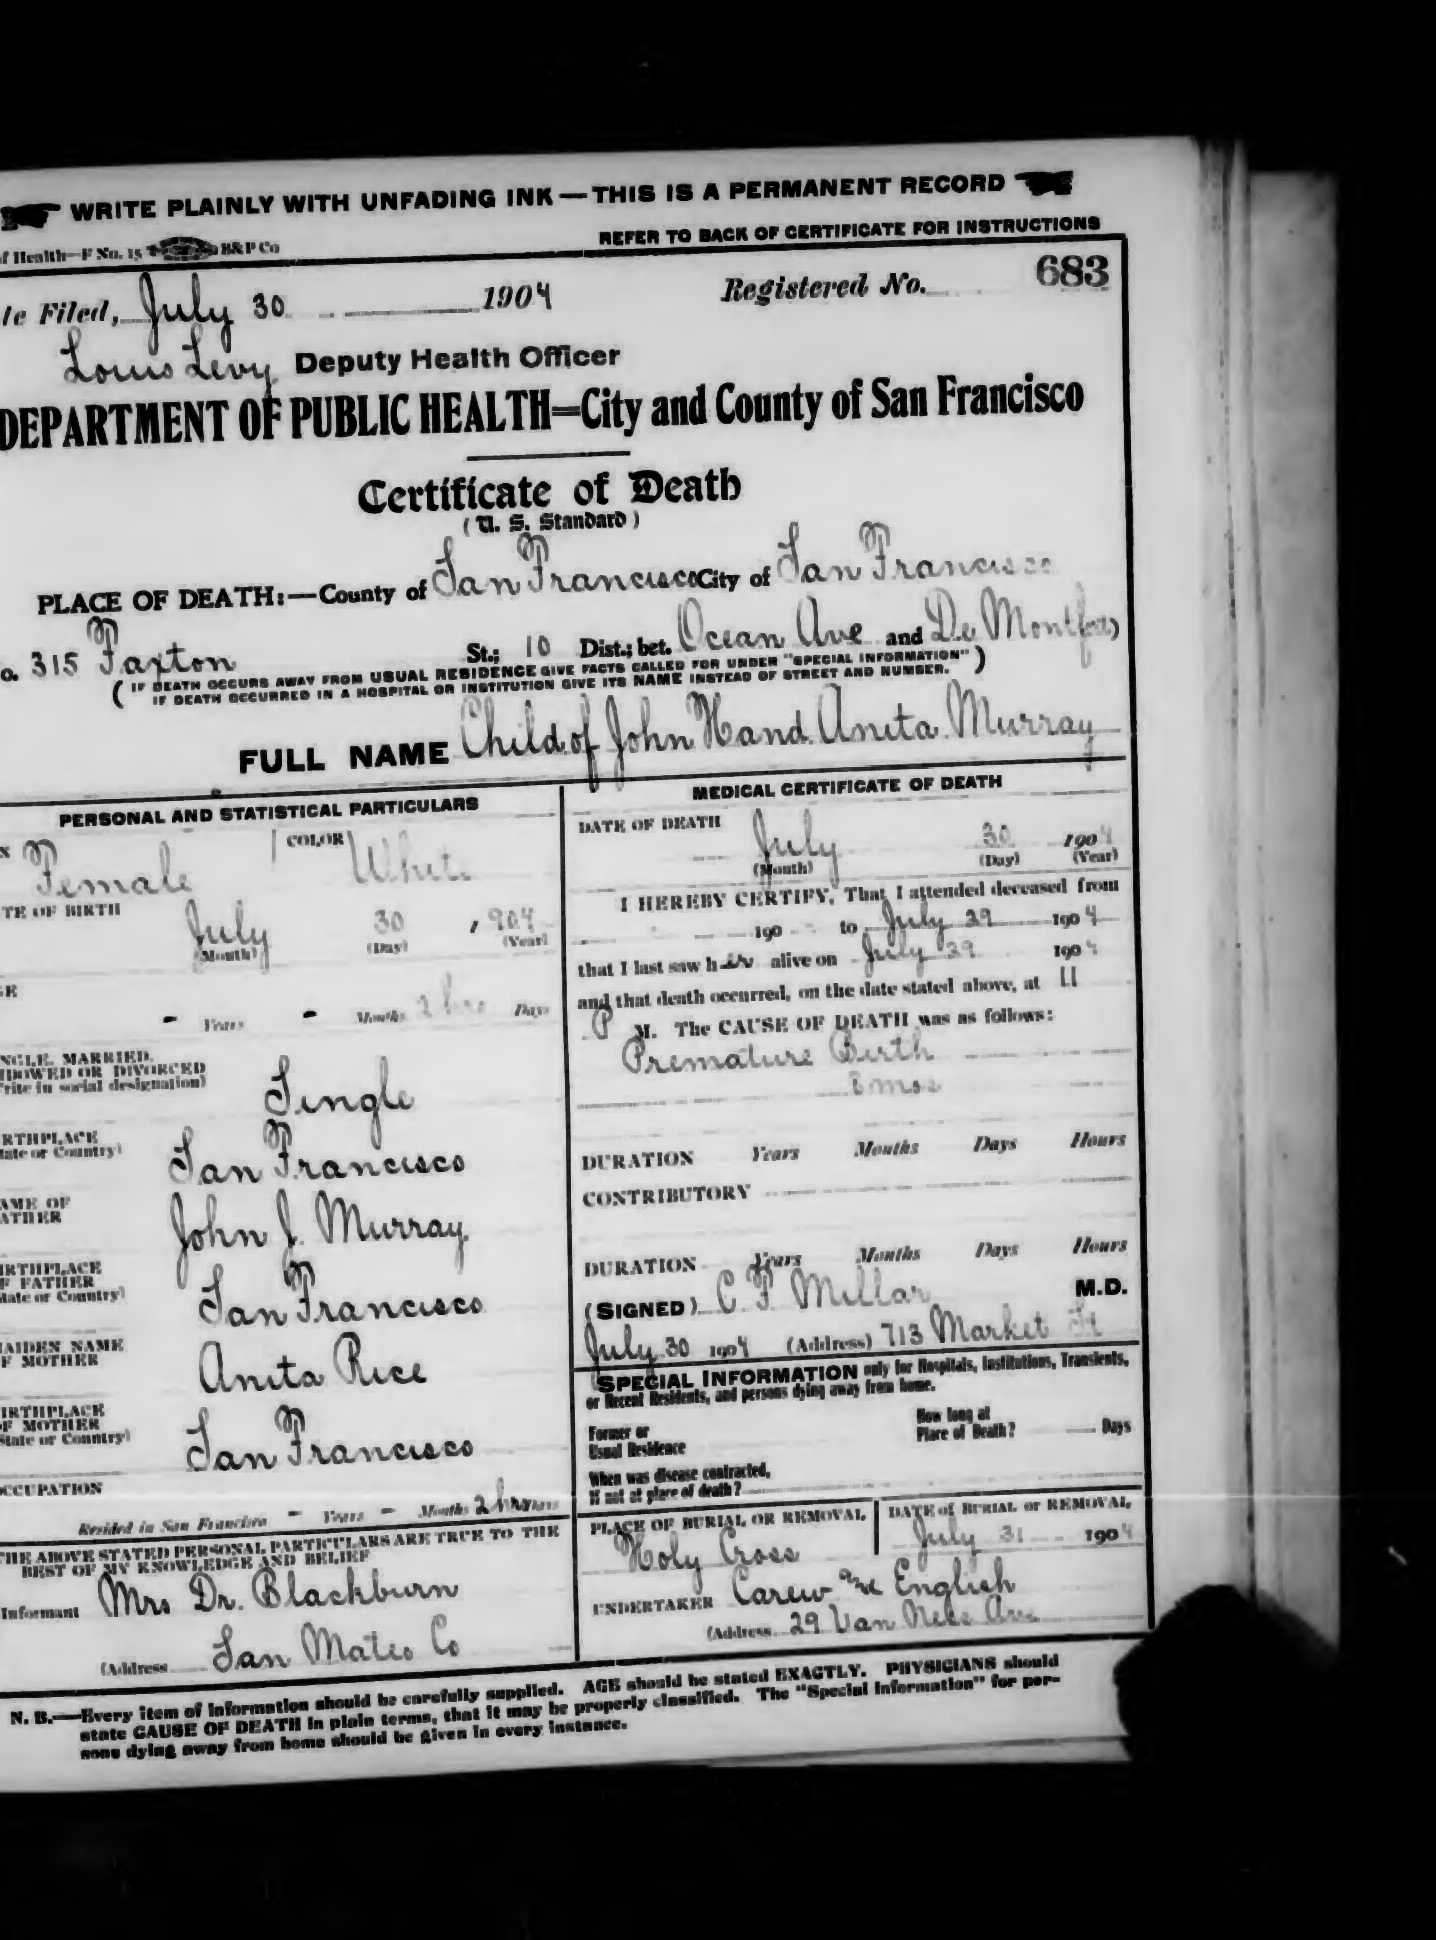 WRITE PLAINLY WITH UNFADING INK — THIS IS A PERMANENT RECORD
f Health—F No. 15 B&P Co
REFER TO BACK OF CERTIFICATE FOR INSTRUCTIONS
te Filed, July 30 1904 Registered No. 683
Louis Levy Deputy Health Officer
DEPARTMENT OF PUBLIC HEALTH=City and County of San Francisco
Certificate of Death
(U. S. Standard)
PLACE OF DEATH:—County of San Francisco City of San Francisco
o. 315 Paxton St.; 10 Dist.; bet. Ocean Ave and De Montfort)
( IF DEATH OCCURS AWAY FROM USUAL RESIDENCE GIVE FACTS CALLED FOR UNDER "SPECIAL INFORMATION" )
IF DEATH OCCURRED IN A HOSPITAL OR INSTITUTION GIVE ITS NAME INSTEAD OF STREET AND NUMBER.
FULL NAME Child of John H and Anita Murray
PERSONAL AND STATISTICAL PARTICULARS
X Female COLOR White
TE OF BIRTH
July 30 , 904
(Month) (Day) (Year)
GE
- Years - Months 2 hrs Days
NGLE, MARRIED,
IDOWED OR DIVORCED
rite in social designation)
Single
RTHPLACE
tate or Country)
San Francisco
AME OF
ATHER
John J. Murray
IRTHPLACE
F FATHER
tate or Country)
San Francisco
AIDEN NAME
F MOTHER
Anita Rice
IRTHPLACE
OF MOTHER
State or Country)
San Francisco
OCCUPATION
Resided in San Francisco - Years - Months 2 hrs Days
THE ABOVE STATED PERSONAL PARTICULARS ARE TRUE TO THE
BEST OF MY KNOWLEDGE AND BELIEF
Informant Mrs Dr. Blackburn
(Address San Mateo Co
MEDICAL CERTIFICATE OF DEATH
DATE OF DEATH
July 30 1904
(Month) (Day) (Year)
I HEREBY CERTIFY, That I attended deceased from
190 to July 29 1904
that I last saw her alive on July 29 1904
and that death occurred, on the date stated above, at 11
P M. The CAUSE OF DEATH was as follows:
Premature Birth
mos
DURATION Years Months Days Hours
CONTRIBUTORY
DURATION Years Months Days Hours
(SIGNED) C. F. Millar M.D.
July 30 1904 (Address) 713 Market St
SPECIAL INFORMATION only for Hospitals, Institutions, Transients,
or Recent Residents, and persons dying away from home.
Former or
Usual Residence
How long at
Place of Death? Days
When was disease contracted,
If not at place of death?
PLACE OF BURIAL OR REMOVAL
Holy Cross
DATE of BURIAL or REMOVAL
July 31 1904
UNDERTAKER Carew and English
(Address 29 Van Ness Ave
N. B.—Every item of information should be carefully supplied. AGE should be stated EXACTLY. PHYSICIANS should
state CAUSE OF DEATH in plain terms, that it may be properly classified. The "Special Information" for per-
sons dying away from home should be given in every instance.